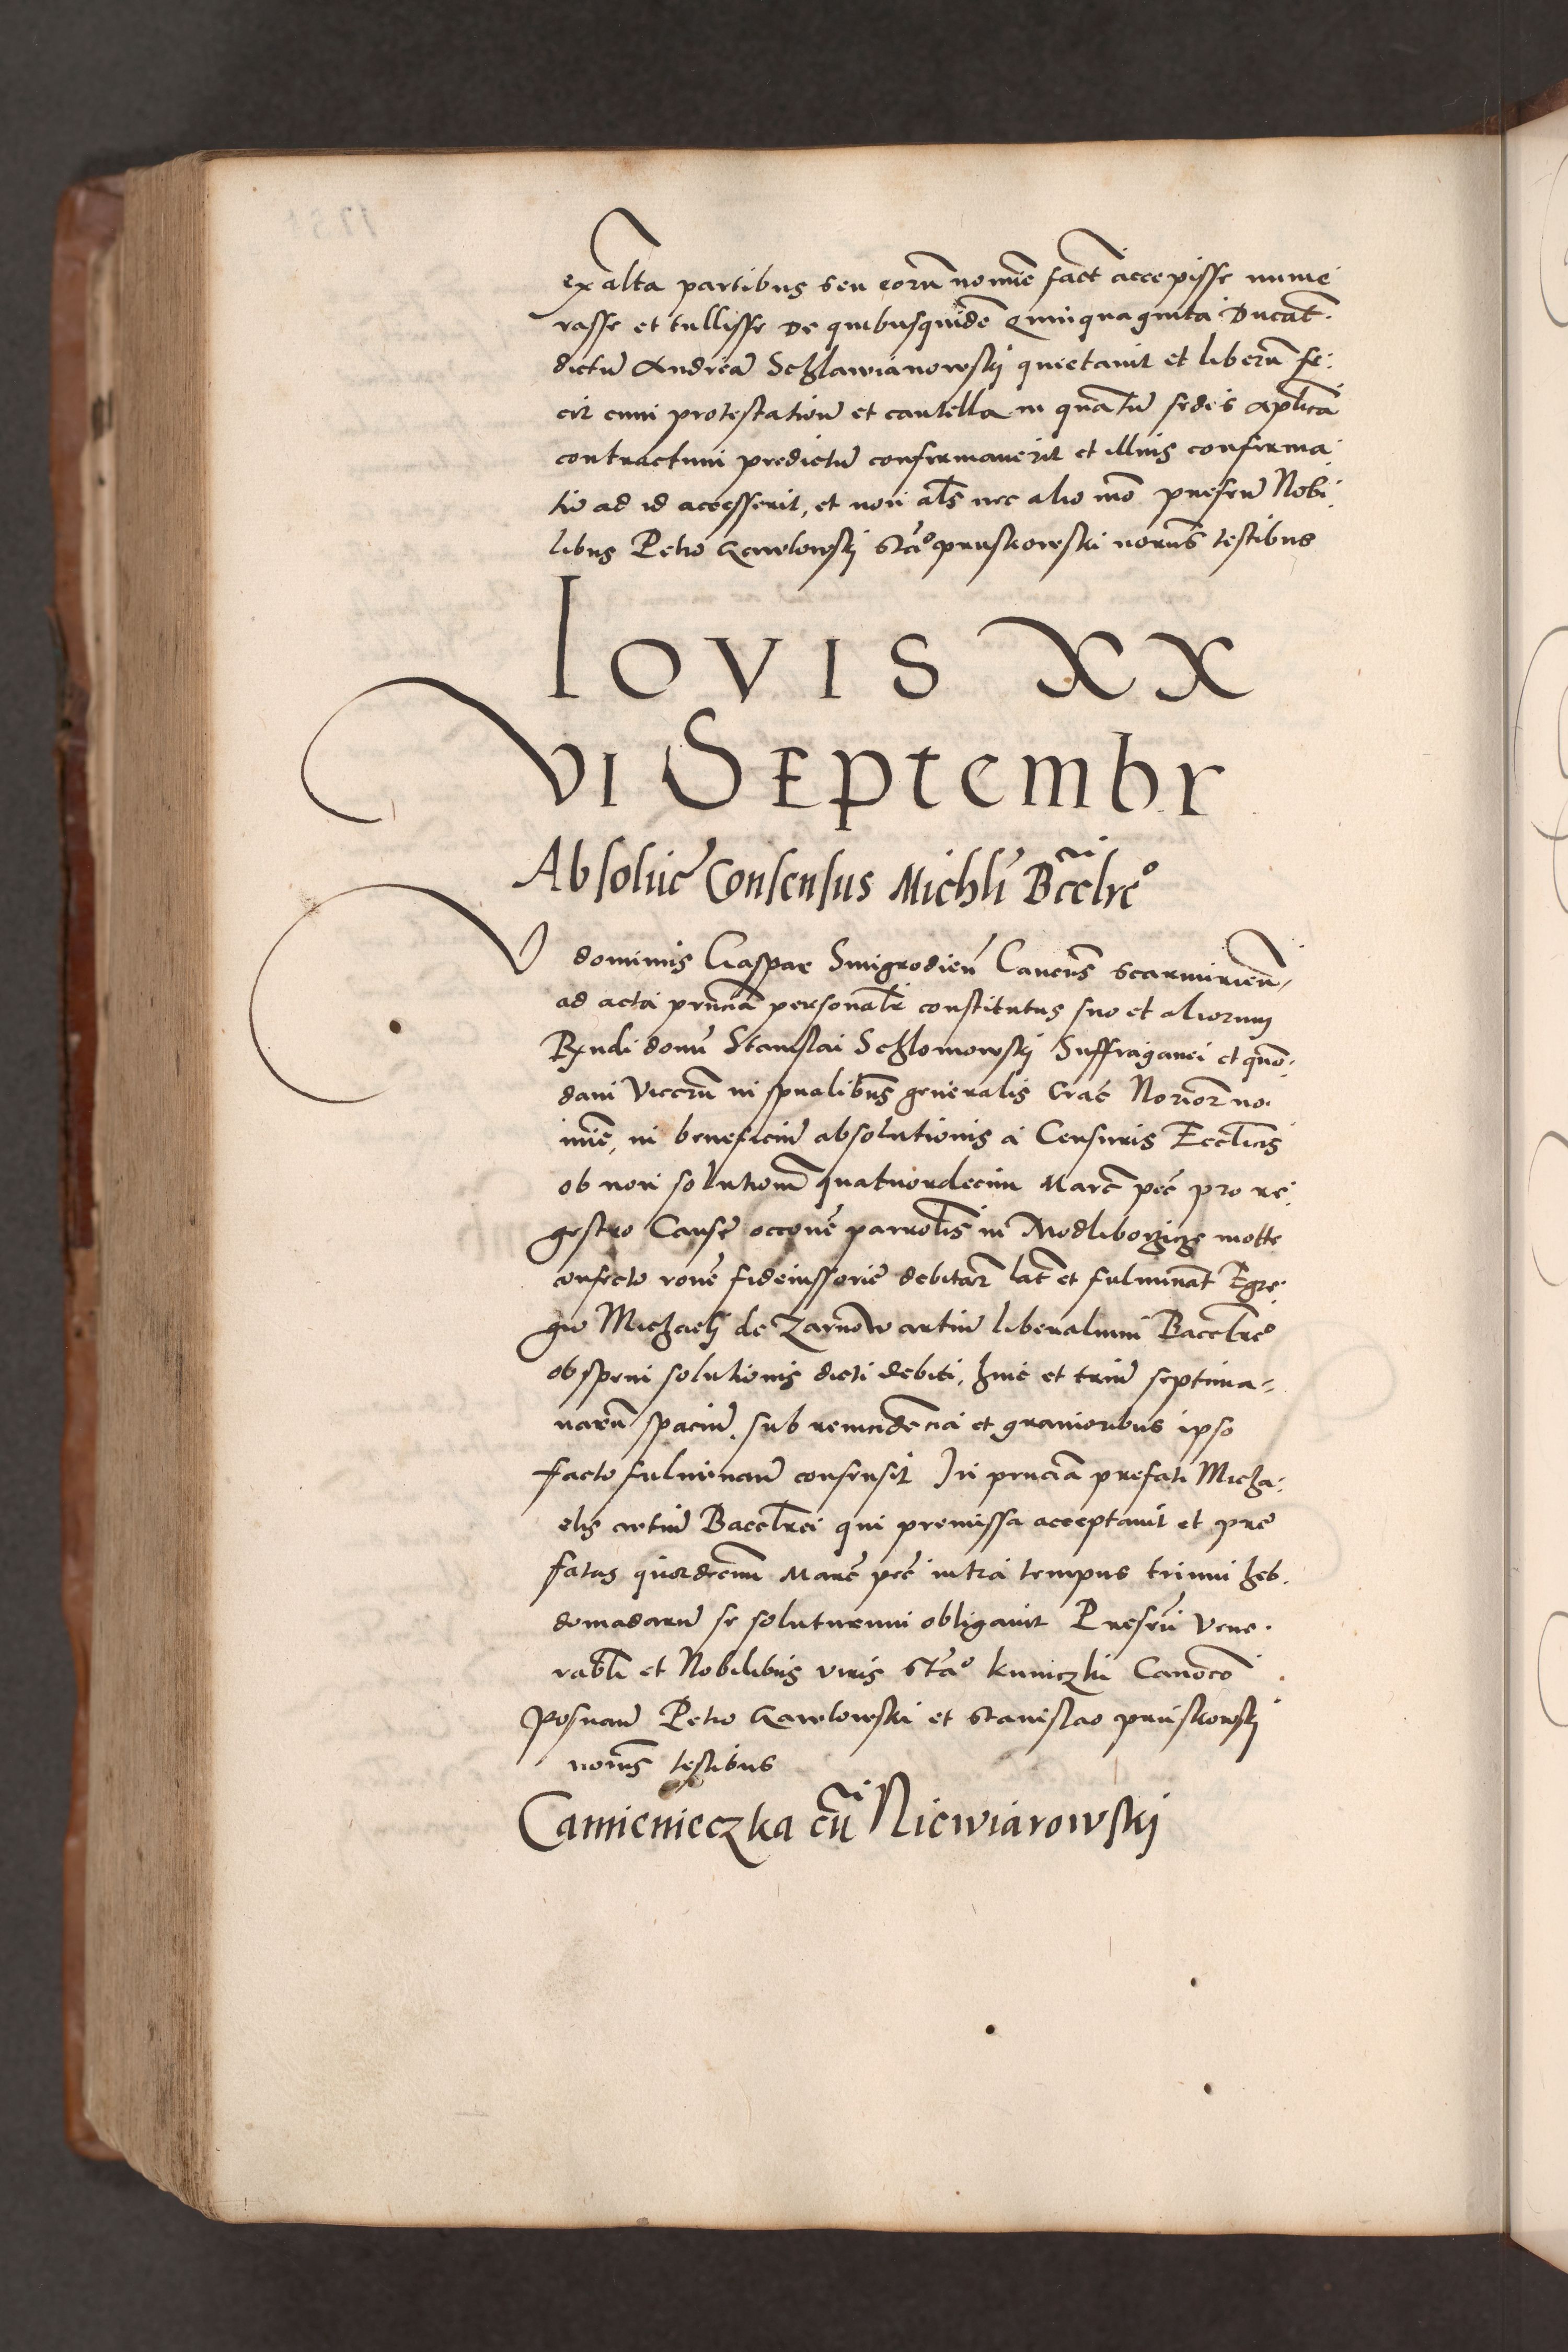 ex altera partibus seu eorū nomīe fact accepisse nume
rasse et tullisse De quibusquidē Quinquaginta Ducat.
dictū Andreā Sczlawianowskj quietavit et liberū fe:
cit cum protestationē et cautella in quātū sedes aplica
contractum predictū confirmaverit et illius confirma
tio ad id accesserit, et non als nec alio mō presen Nobi
libus Petro Gawlowskj Sta° pruskowski noriis testibus
Iovis XX
VI Septembr
Absoluc Consensus Michli Bcclre°
dominus Caspar Smigrodien Cancus Scarmirien
ad acta prncia personalr constitutus suo et aliorum
Rxndi domi Stanislai Sczlomowskj Suffraganei et quon
dam Vicerii in spualibus generalis Crac Norior no
mīe, in beneficiū absolutionis a Censuris Ecclicis
ob non solutionē quatuordecim Marc pec pro re
gestro Cause occone parrolis in Modliborzicze motte
confecto rone fideiussorie debitar lat et fulminat Egre
gio Michaeli de Zarnow artiū liberalium Baccelre°
ob spem solutionis dicti debiti, hinc et triū septima=
narū spaciū, sub reincidēcia et gravioribus ipso
facto fulminanē consensit In prncia prefati Micha
elis artiū Baccelrei qui premissa acceptavit et pre
fatas quordecim Marc pec intra tempus trium heb
domadarū se soluturum obligavit Presen Vene
rabli et Nobilibus viris Sta° Kuniczki Canoco
Posnan Petro Gawlowski et Stanislao pruskowskj
noriis testibus
Camienieczka cū Niewiarowskj